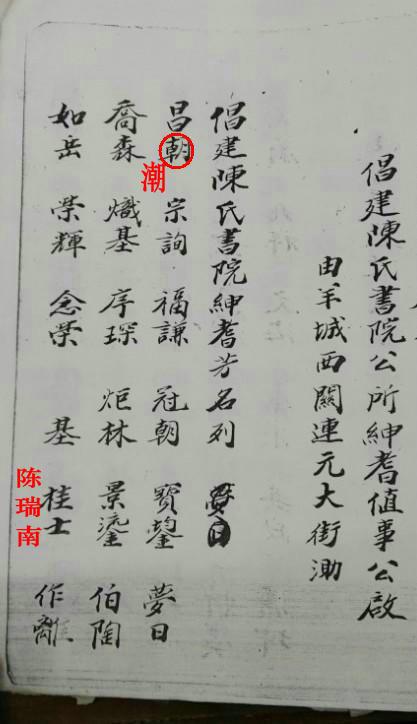 倡建陳氏書院公所紳耆值事公啟
由羊城西關連元大街泐
倡建陳氏書院紳耆芳名列
昌朝 宗詢 福謙 冠朝 寶 夢日
潮
喬森 熾基 序琛 炬林 景鎏 伯陶
如岳 榮輝 念榮 基 桂士 作離
陈瑞南